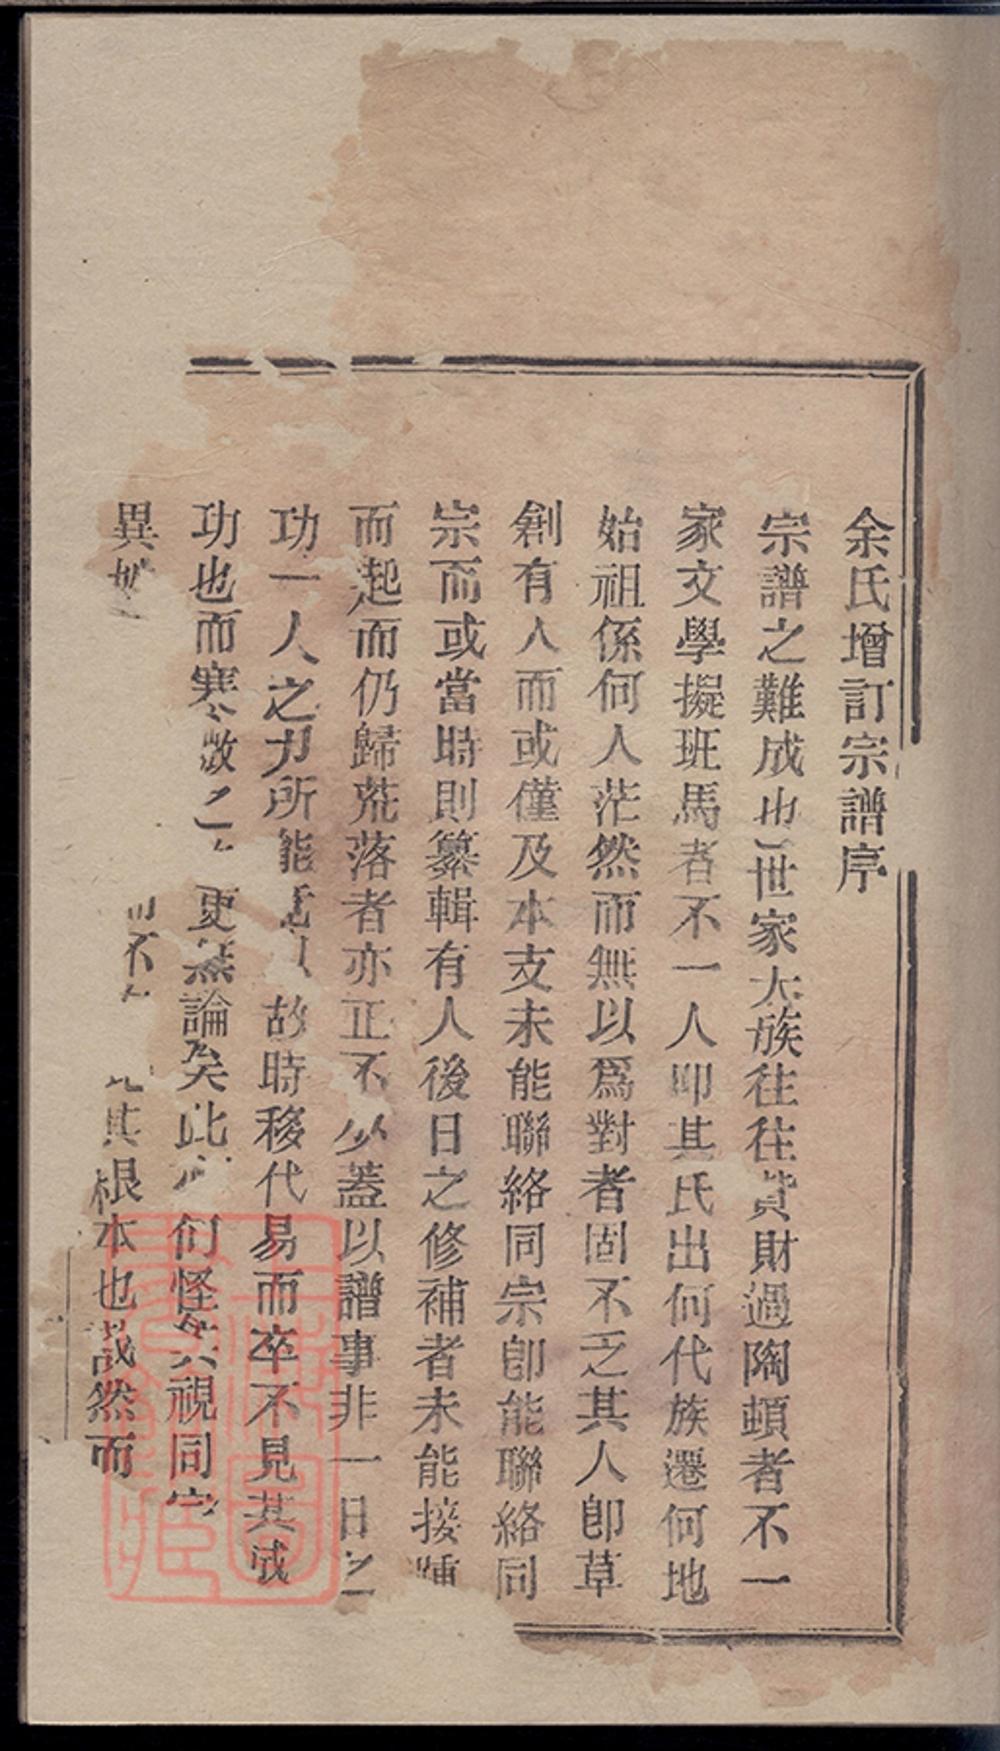 余氏增訂宗譜序
宗譜之難成也世家大族往往貲財過陶頓者不一
家文學擬班馬者不一人叩其氏出何代族遷何地
始祖係何人茫然而無以爲對者固不乏其人卽草
創有人而或僅及本支未能聯絡同宗卽能聯絡同
宗而或當時則纂輯有人後日之修補者未能接踵
而起而仍歸荒落者亦正不少蓋以譜事非一日之
功一人之力所能故時移代易而卒不見其成
功也而寒微之更無論矣此怪其視同宗
異不其根本也哉然而